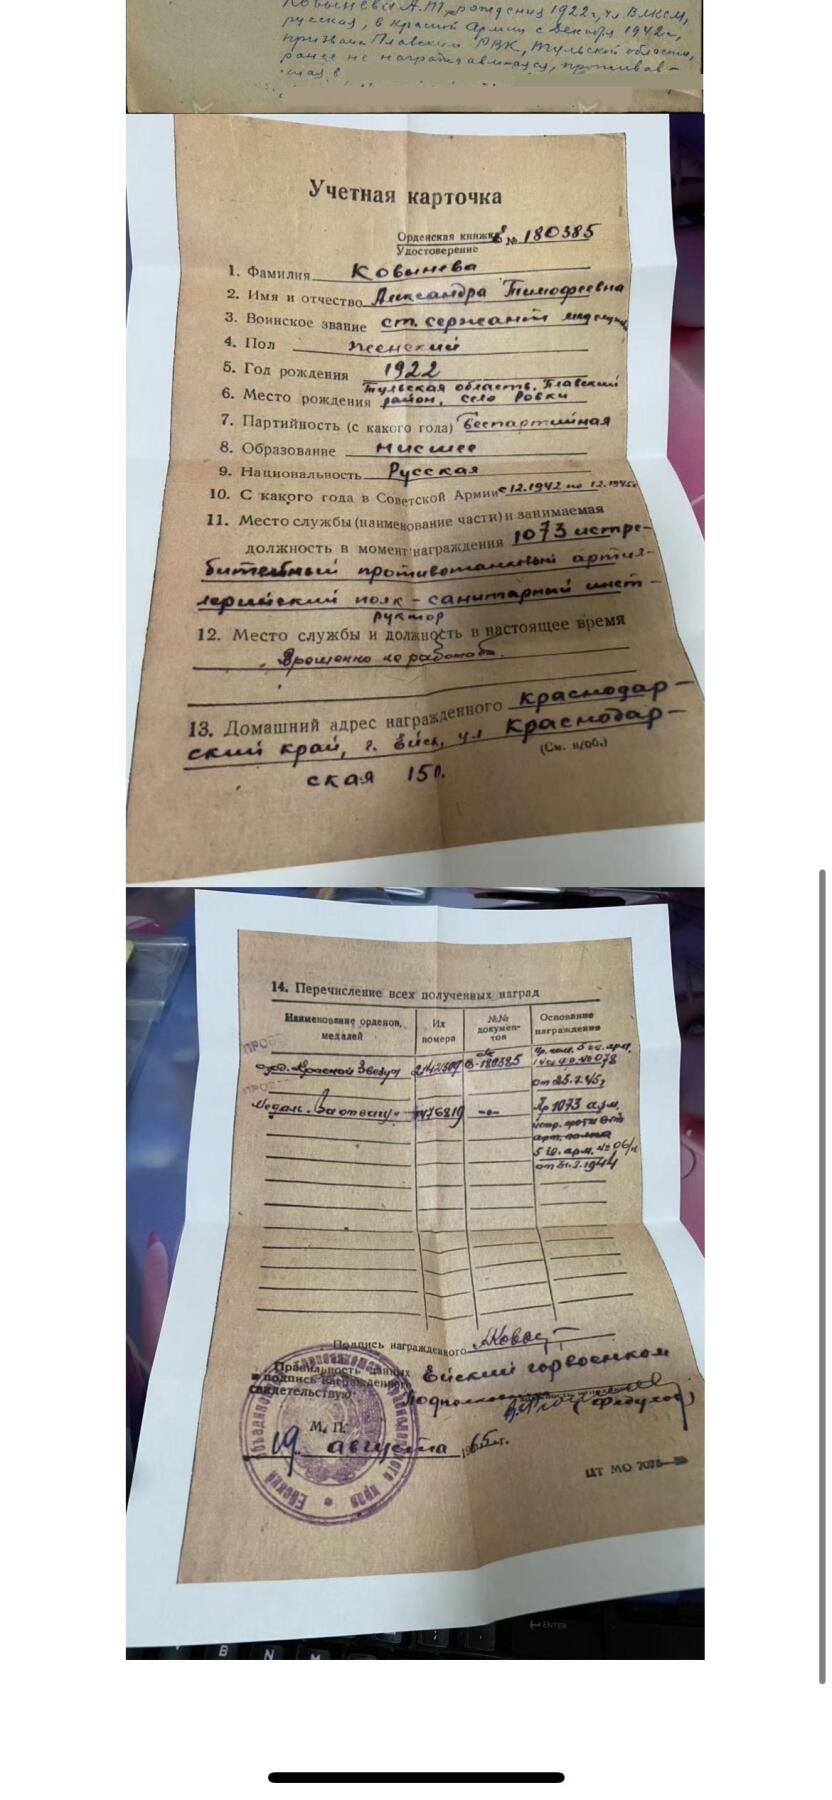 Ковынева А.Т., рождения 1922г, чл. ВЛКСМ,
русская, в Красной Армии с декабря 1942г,
призвана Плавским РВК, Тульской области,
ранее не награждавшаяся,
Учетная карточка
Орденская книжка в № 180385
Удостоверение
1. Фамилия Ковынева
2. Имя и отчество Александра Тимофеевна
3. Воинское звание ст. сержант
4. Пол женский
5. Год рождения 1922
Тульская область, Плавский
6. Место рождения район, село Ровки
7. Партийность (с какого года) беспартийная
8. Образование низшее
9. Национальность Русская
10. С какого года в Советской Армии с 12.1942 по 12.1945г
11. Место службы (наименование части) и занимаемая
должность в момент награждения 1073 истре-
бительный противотанковый артил-
лерийский полк - санитарный инст-
руктор
12. Место службы и должность в настоящее время
Временно не работает.
13. Домашний адрес награжденного Краснодар-
ский край, г. Ейск, ул Краснодар-
(См. н/об.)
ская 150.
14. Перечисление всех полученных наград
Наименование орденов, медалей
Их номера
№№ документов
Основание награждения
орд. Красной Звезды
В-180385
Пр. ком. 5 гв. арм.
от 25.7.45г
Медаль "За отвагу"
Пр 1073
арт. полка
5 гв. арм. № 06/н
Подпись награжденного
Правильность данных Ейский горвоенком
и подпись награжденного
свидетельствую
М. П.
19 августа 1965г.
ENTER
B
N
M